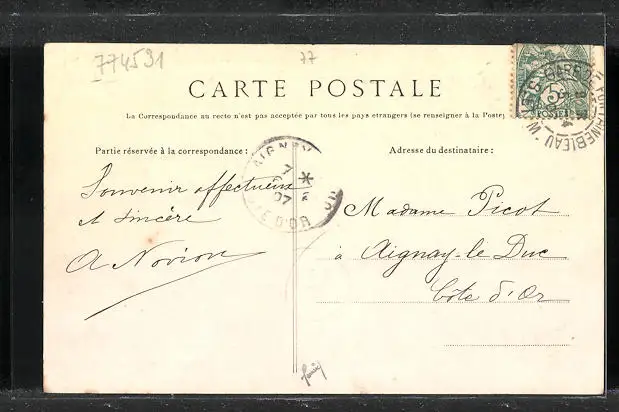 774591 77
CARTE POSTALE
La Correspondance au recto n'est pas acceptée par tous les pays etrangers (se renseigner à la Poste)
Partie réservée à la correspondance :
Adresse du destinataire :
Souvenir affectueux
et sincère
A Novion
Madame Picot
à Aignay-le Duc
Côte d'Or
5c
POSTES
FONTAINEBLEAU
AIGNAY
7
07
CÔTE D'OR